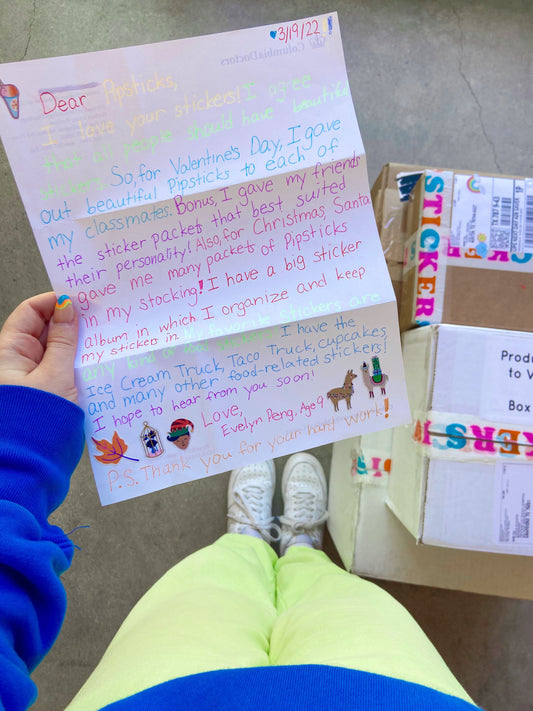 ♥3/19/22!
ColumbiaDoctors
Dear Pipsticks,
I love your stickers! I agree
that all people should have beautiful
stickers. So, for Valentine's Day, I gave
out beautiful Pipsticks to each of
my classmates. Bonus, I gave my friends
the sticker packets that best suited
their personality! Also, for Christmas, Santa
gave me many packets of Pipsticks
in my stocking! I have a big sticker
album in which I organize and keep
my stickers in. My favorite stickers are
any kind of
I have the
Ice Cream Truck, Taco Truck, cupcakes
and many other food-related stickers!
I hope to hear from you soon!
Love,
Evelyn Peng, Age 9
P.S. Thank you for your hard work!
STICKER
Produ
to V
Box
KERS